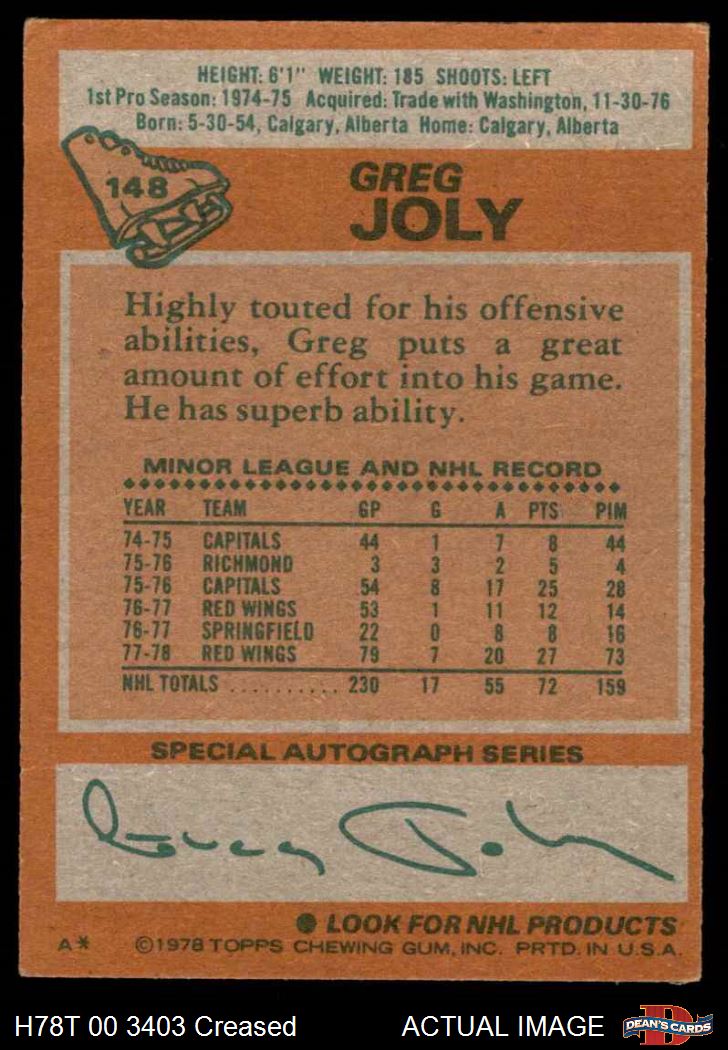 HEIGHT: 6'1" WEIGHT: 185 SHOOTS: LEFT
1st Pro Season: 1974-75 Acquired: Trade with Washington, 11-30-76
Born: 5-30-54, Calgary, Alberta Home: Calgary, Alberta
148
GREG
JOLY
Highly touted for his offensive
abilities, Greg puts a great
amount of effort into his game.
He has superb ability.
MINOR LEAGUE AND NHL RECORD
YEAR TEAM GP G A PTS PIM
74-75 CAPITALS 44 1 7 8 44
75-76 RICHMOND 3 3 2 5 4
75-76 CAPITALS 54 8 17 25 28
76-77 RED WINGS 53 1 11 12 14
76-77 SPRINGFIELD 22 0 8 8 16
77-78 RED WINGS 79 7 20 27 73
NHL TOTALS .......... 230 17 55 72 159
SPECIAL AUTOGRAPH SERIES
Greg Joly
LOOK FOR NHL PRODUCTS
A* ©1978 TOPPS CHEWING GUM, INC. PRTD. IN U.S.A.
H78T 00 3403 Creased ACTUAL IMAGE DEAN'S CARDS